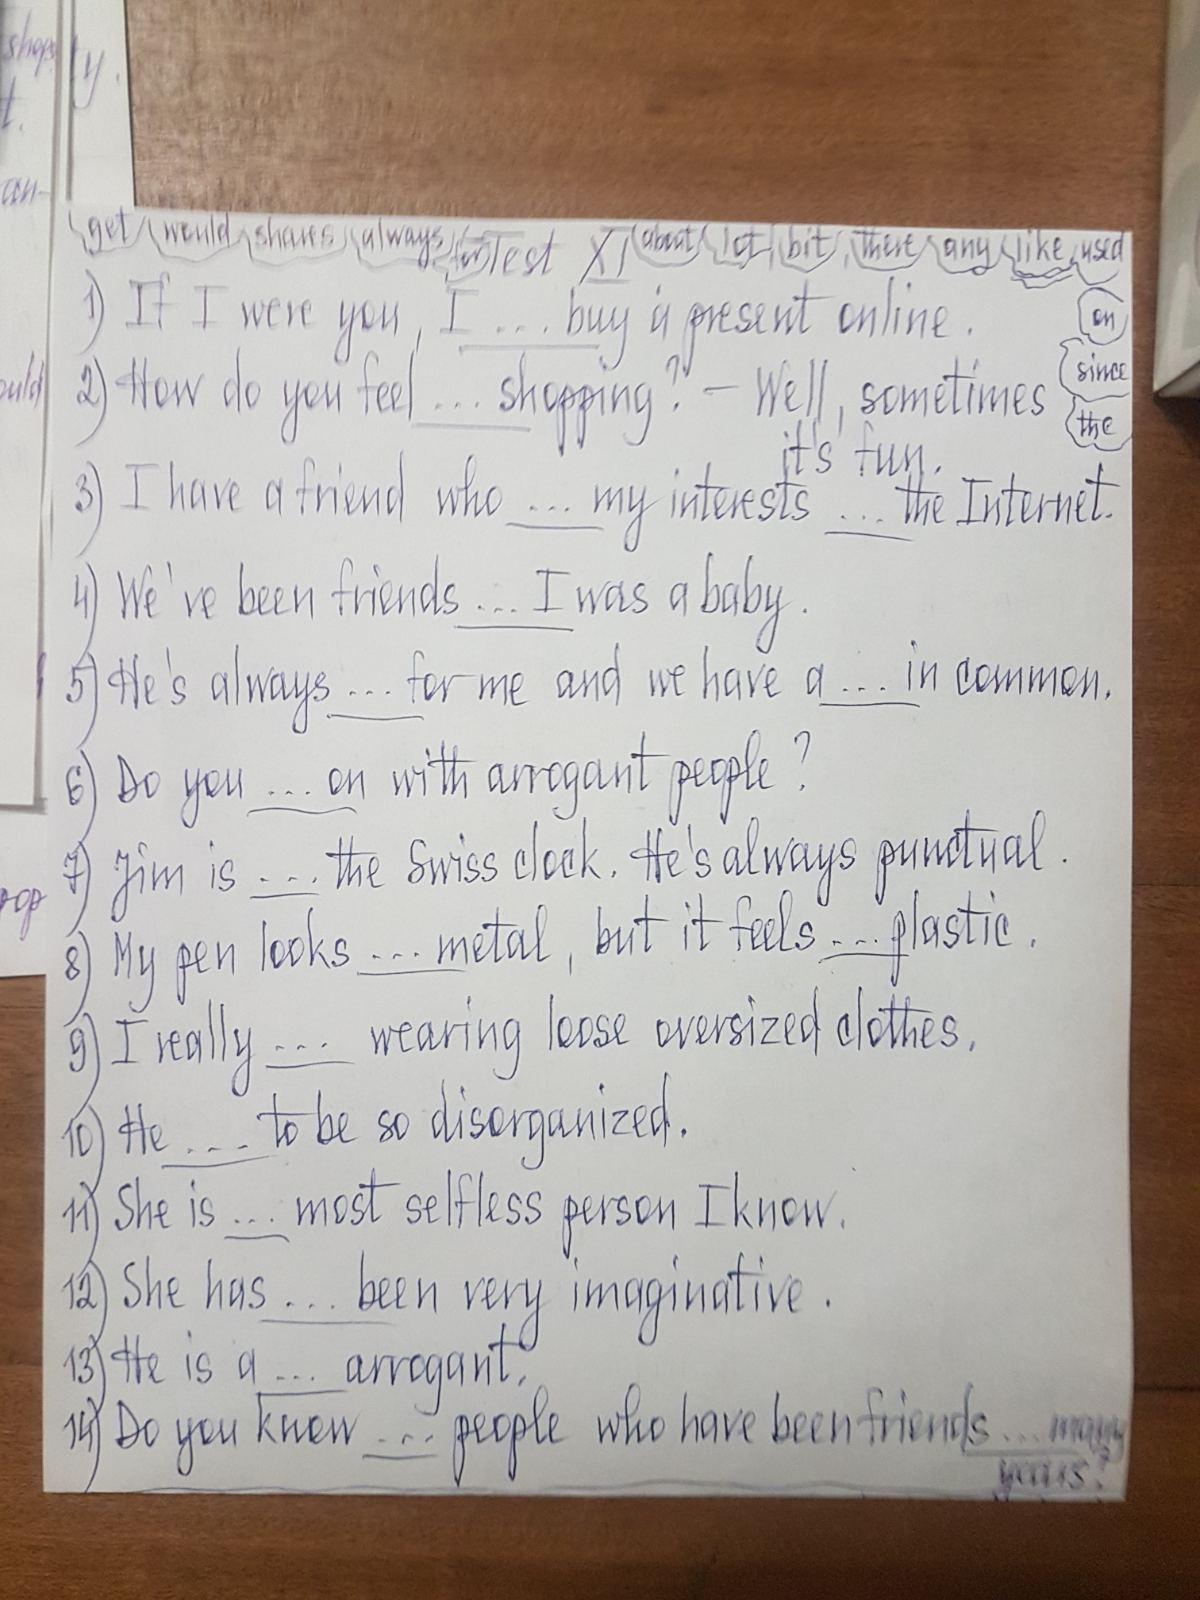 shops
ty.
t.
get would shares always for Test XI about lot bit there any like used
1) If I were you, I ... buy a present online.
on
since
2) How do you feel ... shopping? – Well, sometimes
the
it's fun.
3) I have a friend who ... my interests ... the Internet.
4) We've been friends ... I was a baby.
5) He's always ... for me and we have a ... in common.
6) Do you ... on with arrogant people?
7) Jim is ... the Swiss clock. He's always punctual.
8) My pen looks ... metal, but it feels ... plastic.
9) I really ... wearing loose oversized clothes.
10) He ... to be so disorganized.
11) She is ... most selfless person I know.
12) She has ... been very imaginative.
13) He is a ... arrogant.
14) Do you know ... people who have been friends ... many
years?